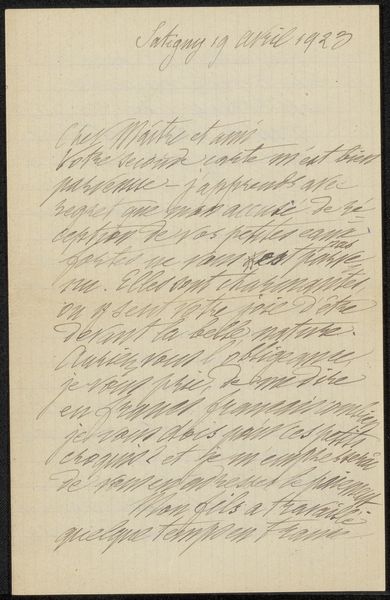 Satigny 19 avril 1923
Cher Maître et ami
Votre seconde carte m'est bien
parvenue – j'apprends avec
regret que mon accusé de ré-
ception de vos petites eaux
fortes ne vous est pas parve
nu. Elles sont charmantes
on sent votre joie d'être
devant la belle nature.
Auriez vous l'obligeance
je vous prie, de me dire
en francs français combien
je vous dois pour ces petits
croquis et je m'empresserai
de vous en adresser le paiement
Mon fils a travaillé
quelque temps en France